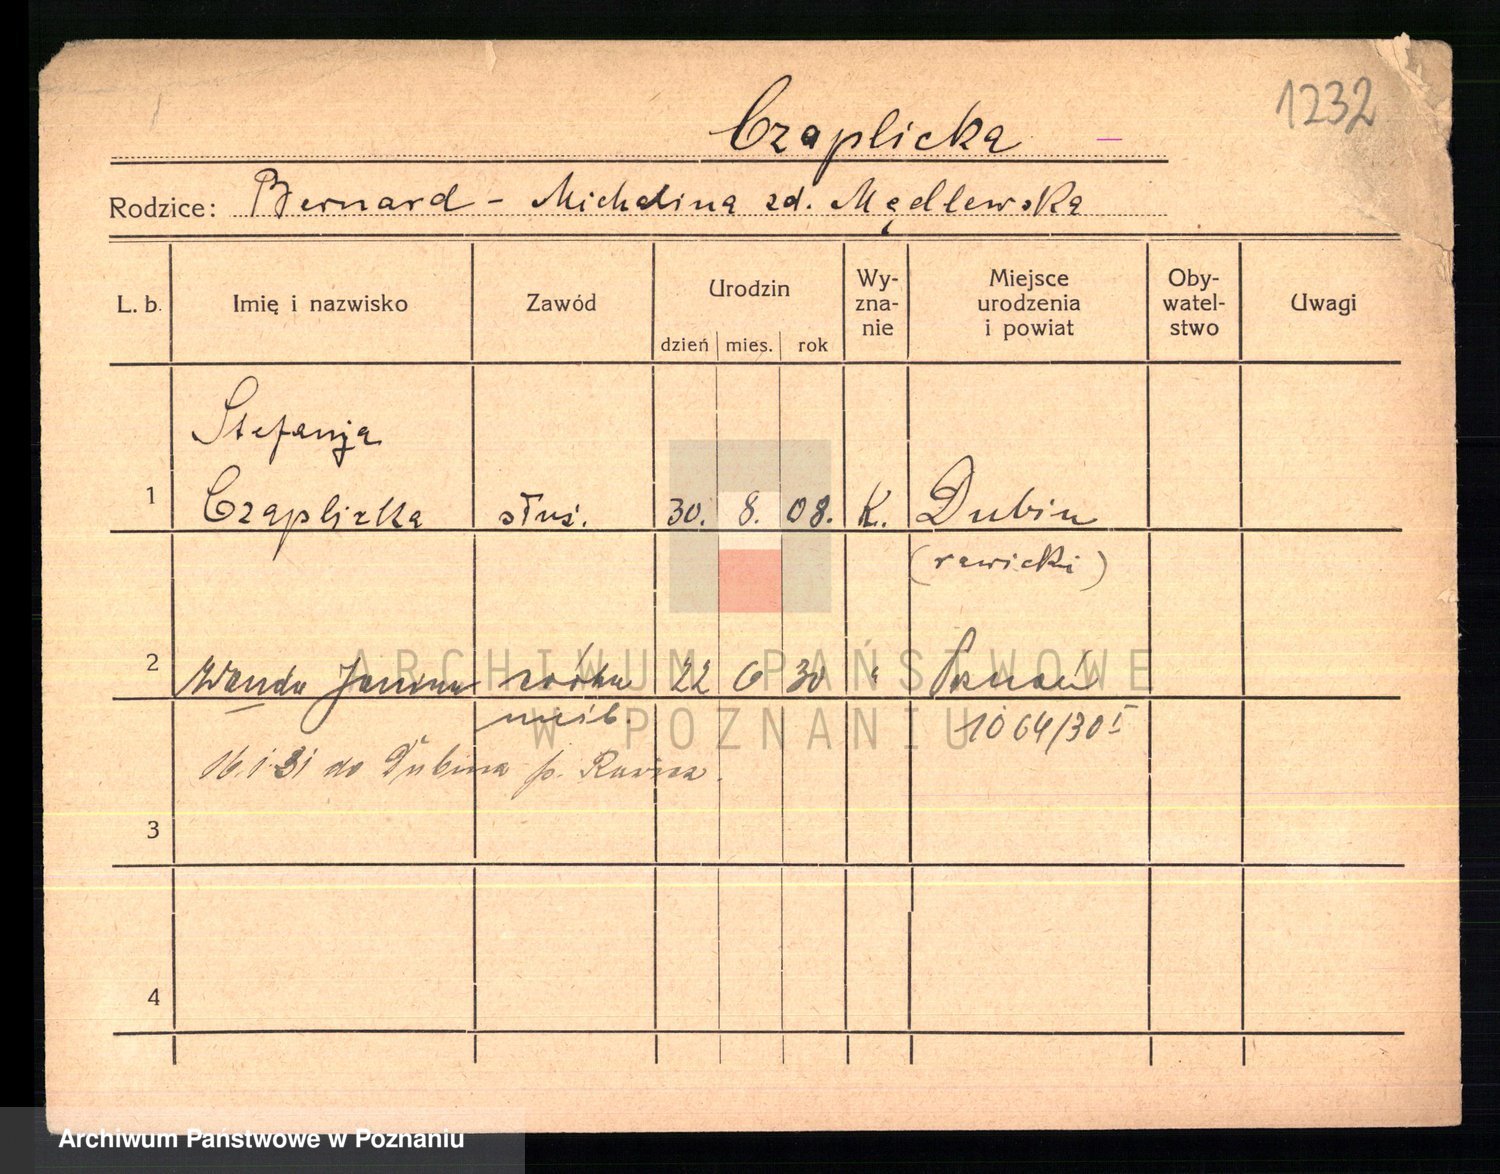 1232
Czaplicka
Rodzice: Bernard - Michalina zd. Mądlewska
L. b. Imię i nazwisko Zawód Urodzin dzień mies. rok Wy-zna-nie Miejsce urodzenia i powiat Oby-watel-stwo Uwagi
Stefanja
1 Czaplicka służ. 30. 8. 08. K. Dubin
(rawicki)
2 Wanda Janina córka 22 6 30 " Poznań
nieślb. 1064/30 I
16.1.31 do Dubina p. Rawicz.
3
4
ARCHIWUM PAŃSTWOWE
W POZNANIU
Archiwum Państwowe w Poznaniu